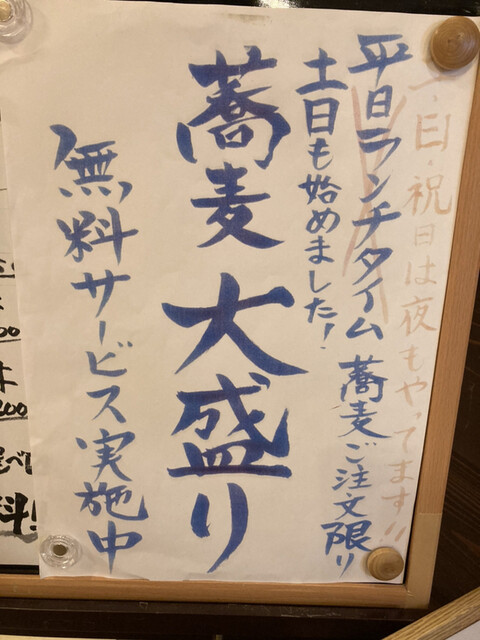 平日ランチタイム 蕎麦ご注文限り
土日も始めました!
蕎麦 大盛り
無料サービス実施中
日・祝日は夜もやってます!!
00
200
料!